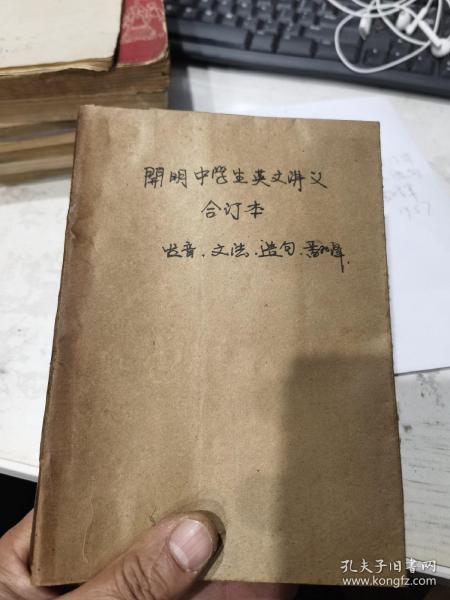 開明中学生英文讲义
合订本
发音.文法.造句.翻译
孔夫子旧书网
www.kongfz.com